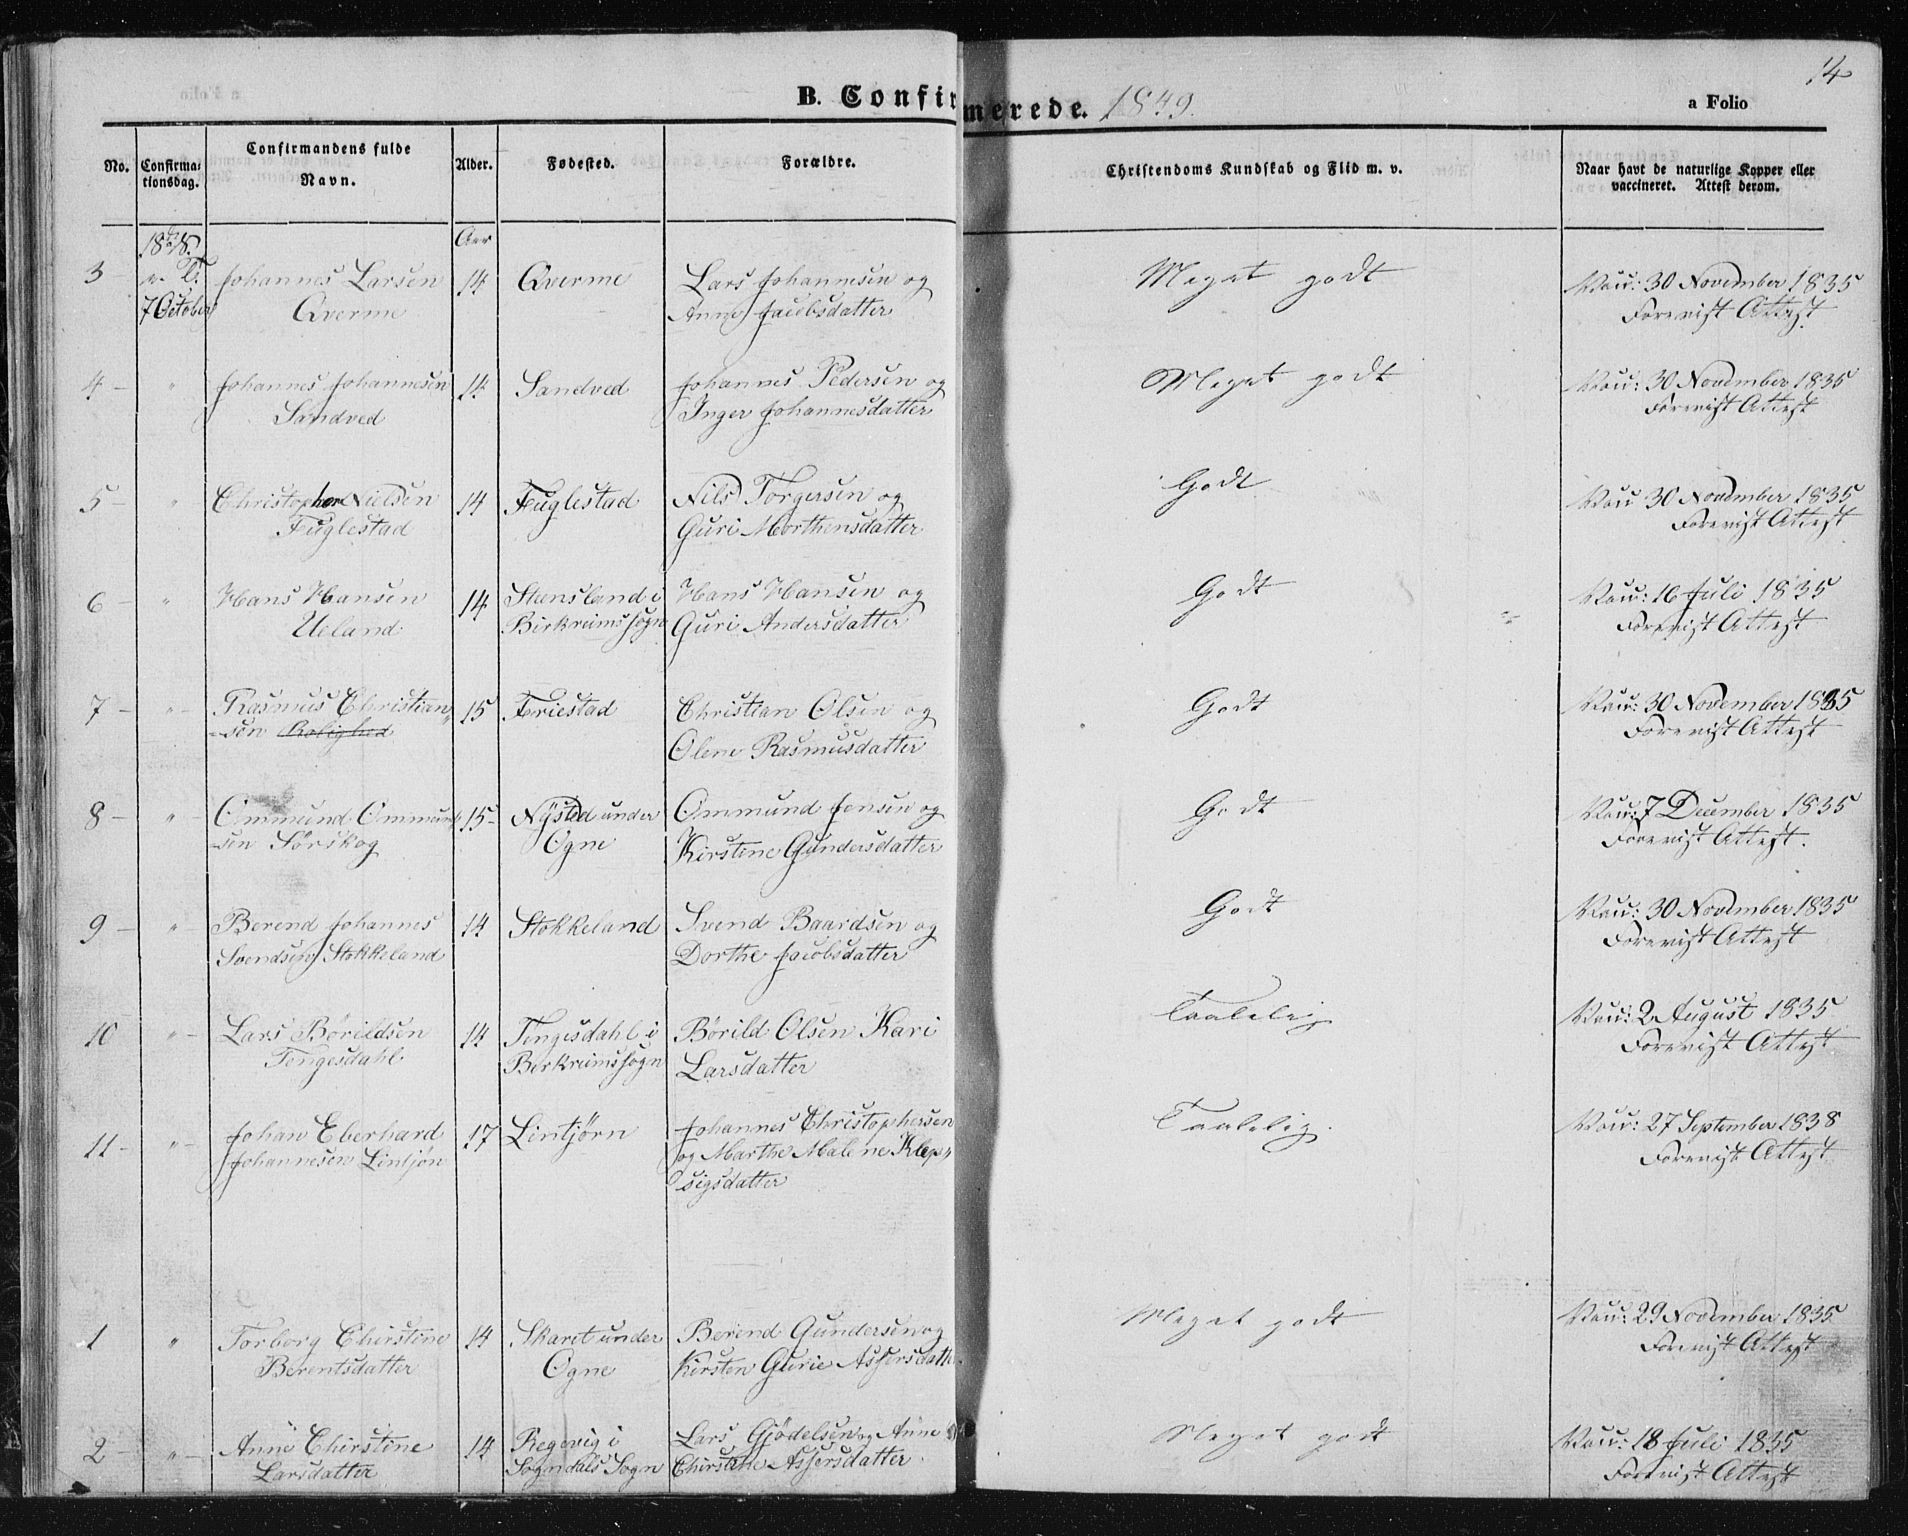 14
B. Confirmerede. 1849.
a Folio
No.
Confirma-
tionsdag.
Confirmandens fulde
Navn.
Alder.
Fødested.
Forældre.
Christendoms Kundskab og Flid m. v.
Naar havt de naturlige Kopper eller
vaccineret. Attest derom.
Aar
3 7 October Johannes Larsen 14 Qverme Lars Johannesen og Meget godt Vacc: 30 November 1835
Qverme Anne Jacobsdatter Forevist Attest
4 - " Johannes Johannesen 14 Sandved Johannes Pedersen og Meget godt Vacc: 30 November 1835
Sandved Inger Johannesdatter Forevist Attest
5 - " Christopher Nielsen 14 Fuglestad Nils Torgersen og Godt Vacc 30 November 1835
Fuglestad Guri Morthensdatter Forevist Attest
6 - " Hans Hansen 14 Steensland i Hans Hansen og Godt Vacc: 16 Juli 1835
Ueland Birkreims sogn Guri Andersdatter Forevist Attest
7 - " Rasmus Christian 15 Friestad Christian Olsen og Godt Vacc: 30 November 1835
-sen Rolighed Olene Rasmusdatter Forevist Attest
8 - " Ommund Ommund 15 Nÿsted under Ommund Jensen og Godt Vacc: 7 December 1835
-sen Sørskog Ogne Kirstine Gundersdatter Forevist Attest.
9 - " Berend Johannes 14 Stokkeland Svend Baardsen og Godt Vacc: 30 November 1835
Svendsen Stokkeland Dorthe Jacobsdatter Forevist Attest
10 " Lars Börildsen 14 Tengesdahl i Börild Olsen Kari Taalelig Vacc: 2 August 1835
Tengesdahl Birkreims sogn Larsdatter Forevist Attest
11 - " Johan Eberhard 17 Lintjørn Johannes Christophersen Taalelig. Vacc: 27 September 1838
Johannesen Lintjøn og Marthe Malene Klep-
sigsdatter Forevist Attest
1 " Torberg Chirstine 14 Skaret under Berend Gundersen og Meget godt Vacc: 29 November 1835
Berentsdatter Ogne Kirsten Gurie Assersdatter Forevist Attest
2 - " Anne Chirstine 14 Regevig i Lars Gjødelsen og Anne Meget godt Vacc: 18 Juli 1835
Larsdatter Sogndals Sogn Chirstine Assersdatter Forevist Attest